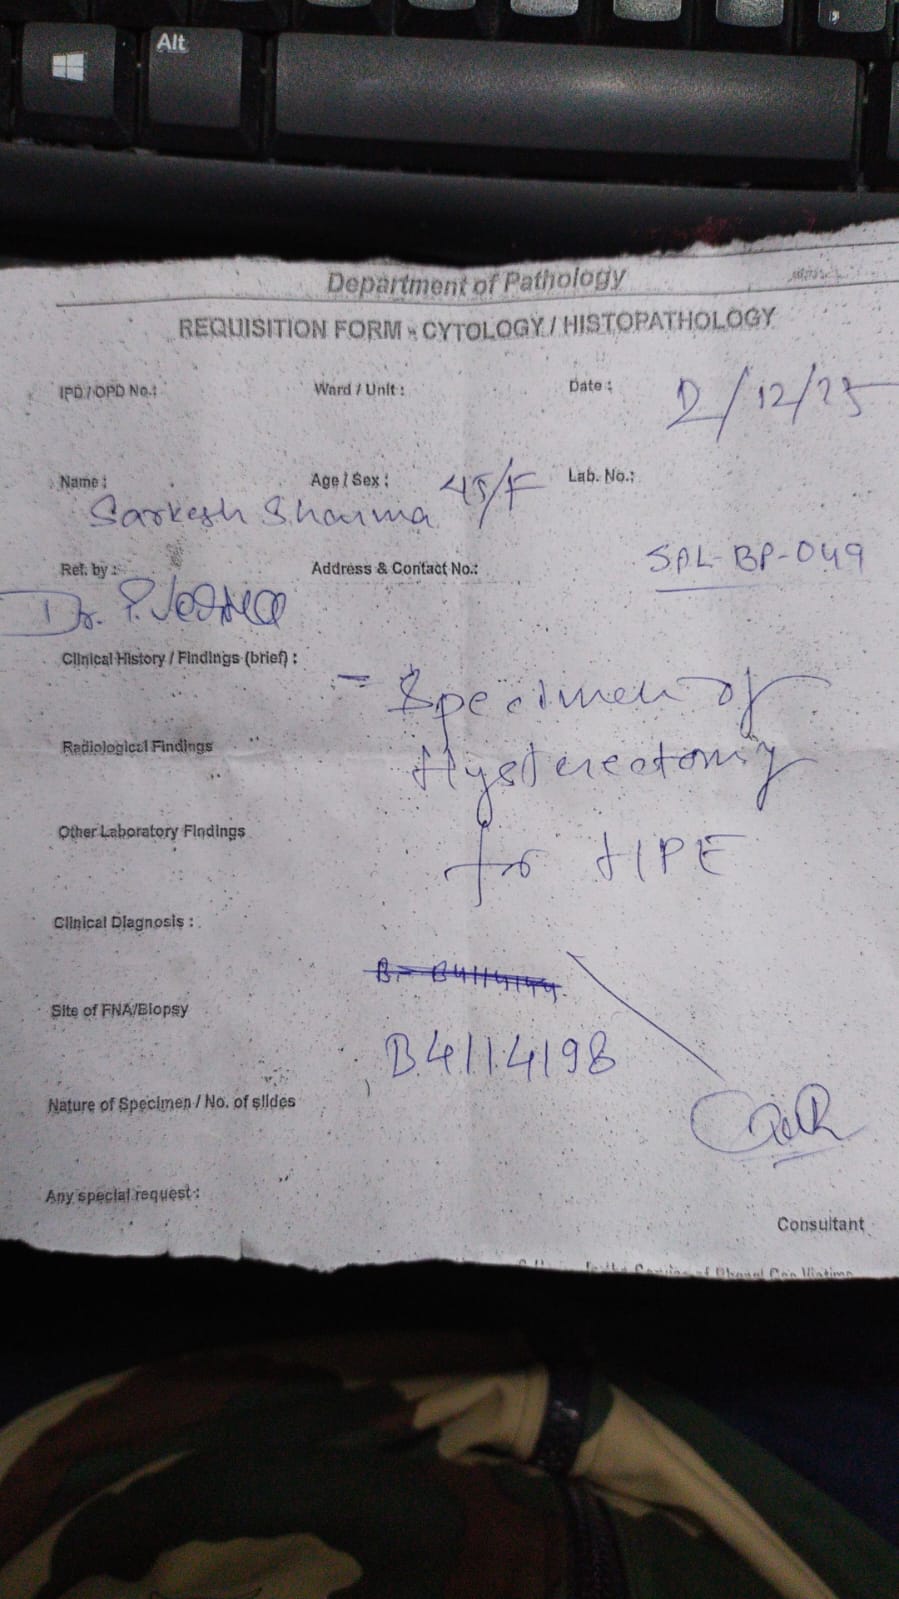 Alt
Department of Pathology
REQUISITION FORM - CYTOLOGY / HISTOPATHOLOGY
IPD / OPD No.: Ward / Unit : Date : 2/12/25
Name : Sarkesh Sharma Age / Sex : 45/F Lab. No.:
SPL-BP-049
Ref. by : Dr. Address & Contact No.:
Clinical History / Findings (brief) :
- Specimen of
Radiological Findings
Hysterectomy
Other Laboratory Findings
for HPE
Clinical Diagnosis :
Site of FNA/Biopsy
B4114198
Nature of Specimen / No. of slides
Any special request :
Consultant